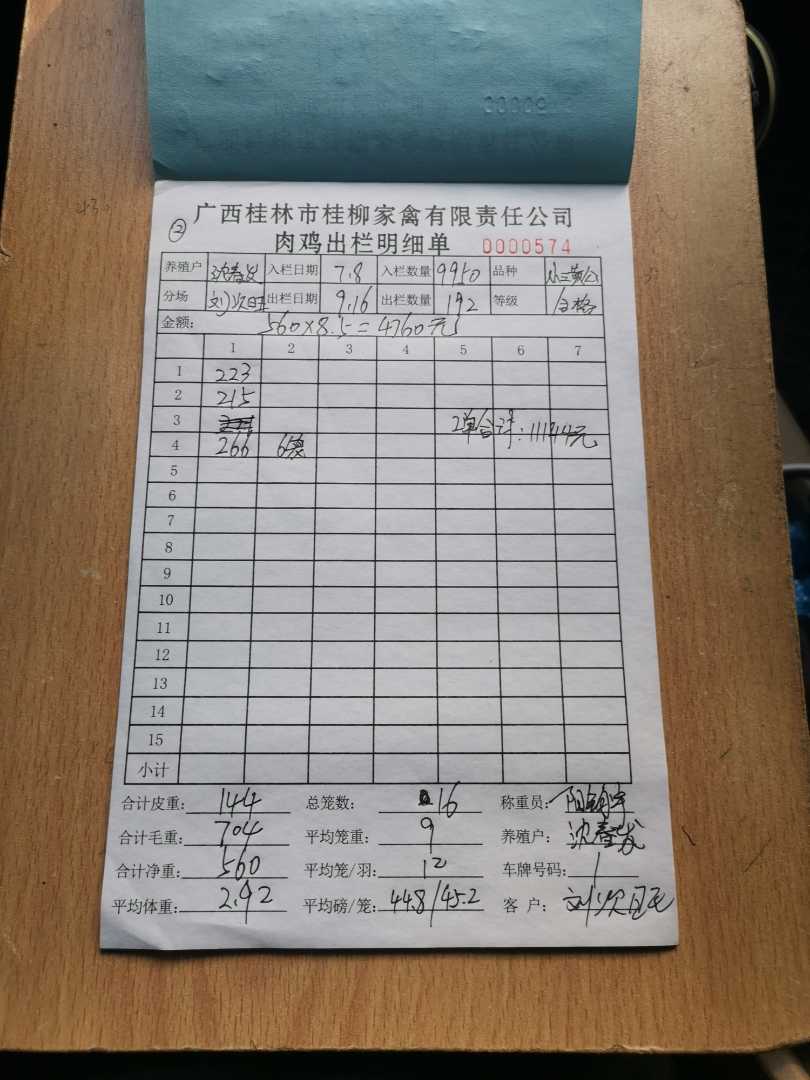 ② 广西桂林市桂柳家禽有限责任公司
肉鸡出栏明细单 0000574
养殖户 沈春发 入栏日期 7.8 入栏数量 9950 品种
分场 出栏日期 9.16 出栏数量 192 等级 合格
金额: 560×8.5=4760元
1 2 3 4 5 6 7
1 223
2 215
3 2单合计:11144元
4 266
5
6
7
8
9
10
11
12
13
14
15
小计
合计皮重: 144 总笼数: 16 称重员:
合计毛重: 704 平均笼重: 9 养殖户: 沈春发
合计净重: 560 平均笼/羽: 12 车牌号码: /
平均体重: 2.92 平均磅/笼: 44.8/45.2 客 户: